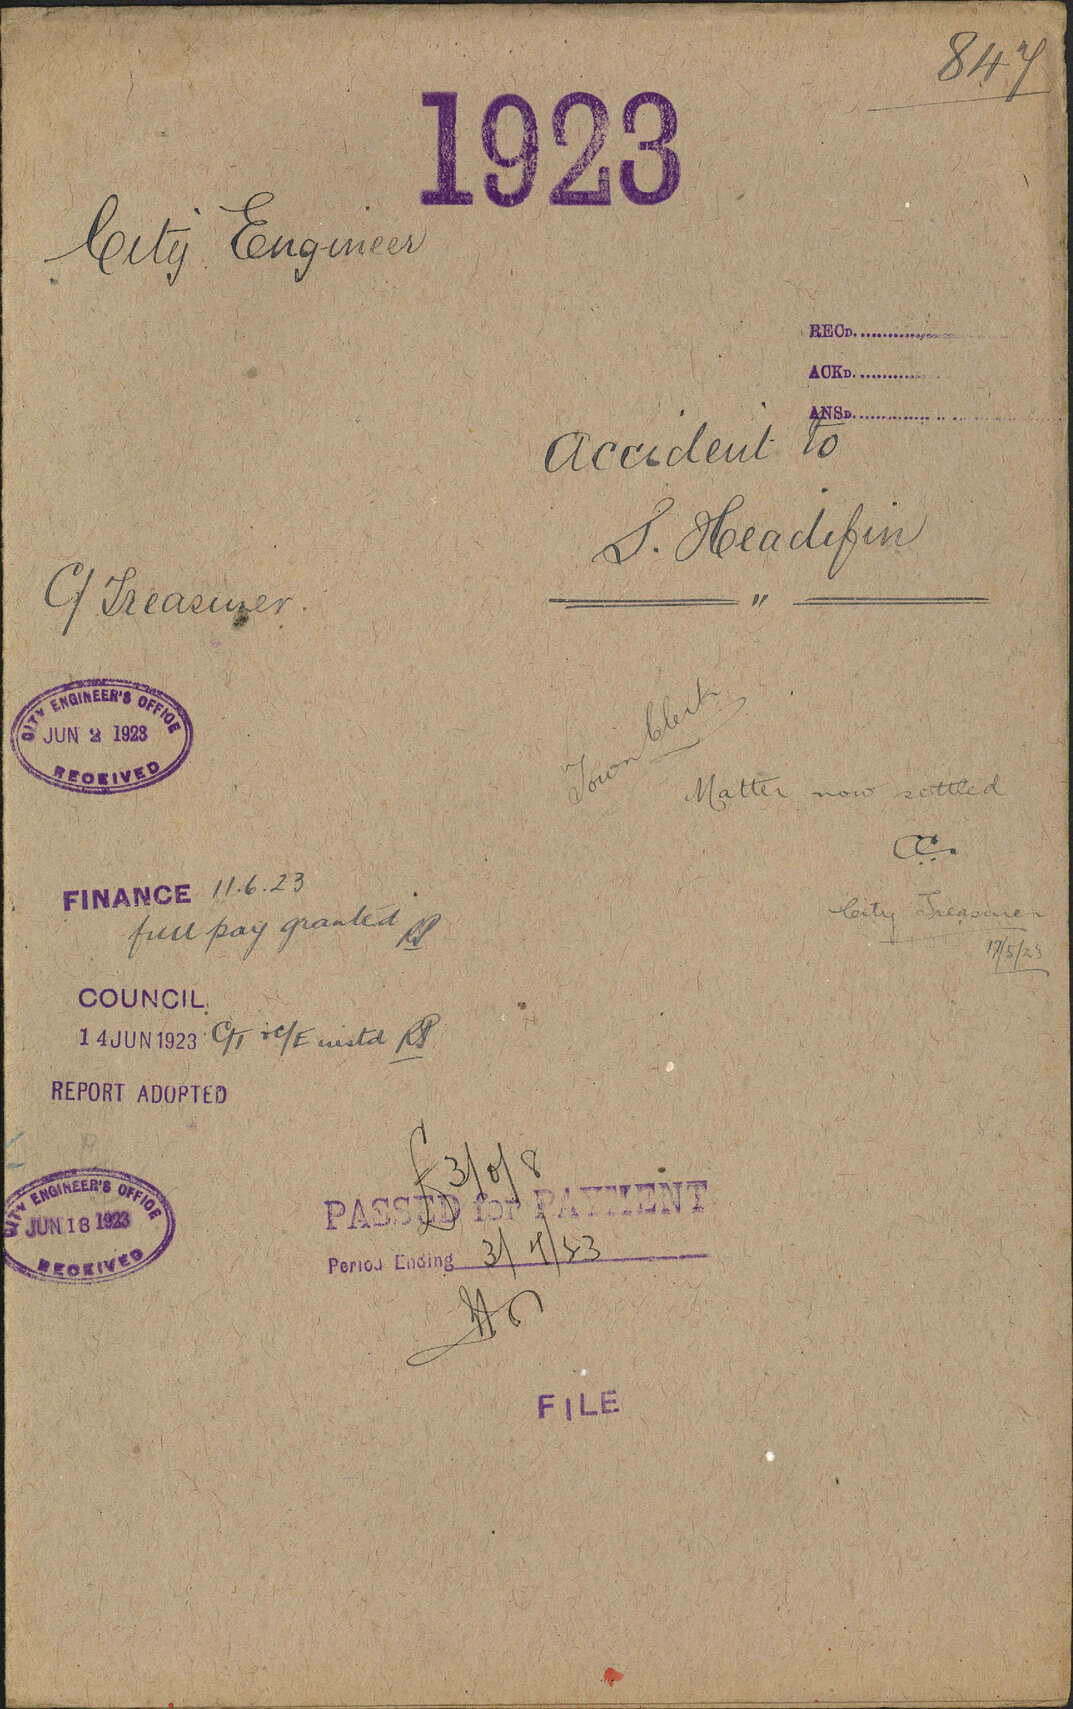 847
1923
City Engineer
RECD.
ACKD.
ANSD.
Accident to
S. Headifin
"
C/Treasurer.
CITY ENGINEER'S OFFICE
JUN 2 1923
RECEIVED
Town Clerk
Matter now settled
City Treasurer
17/5/23
FINANCE 11.6.23
full pay granted
COUNCIL
14 JUN 1923 C/T & C/E instd
REPORT ADOPTED
CITY ENGINEER'S OFFICE
JUN 18 1923
RECEIVED
£3/0/8
PASSED for PAYMENT
Period Ending 3/7/23
FILE